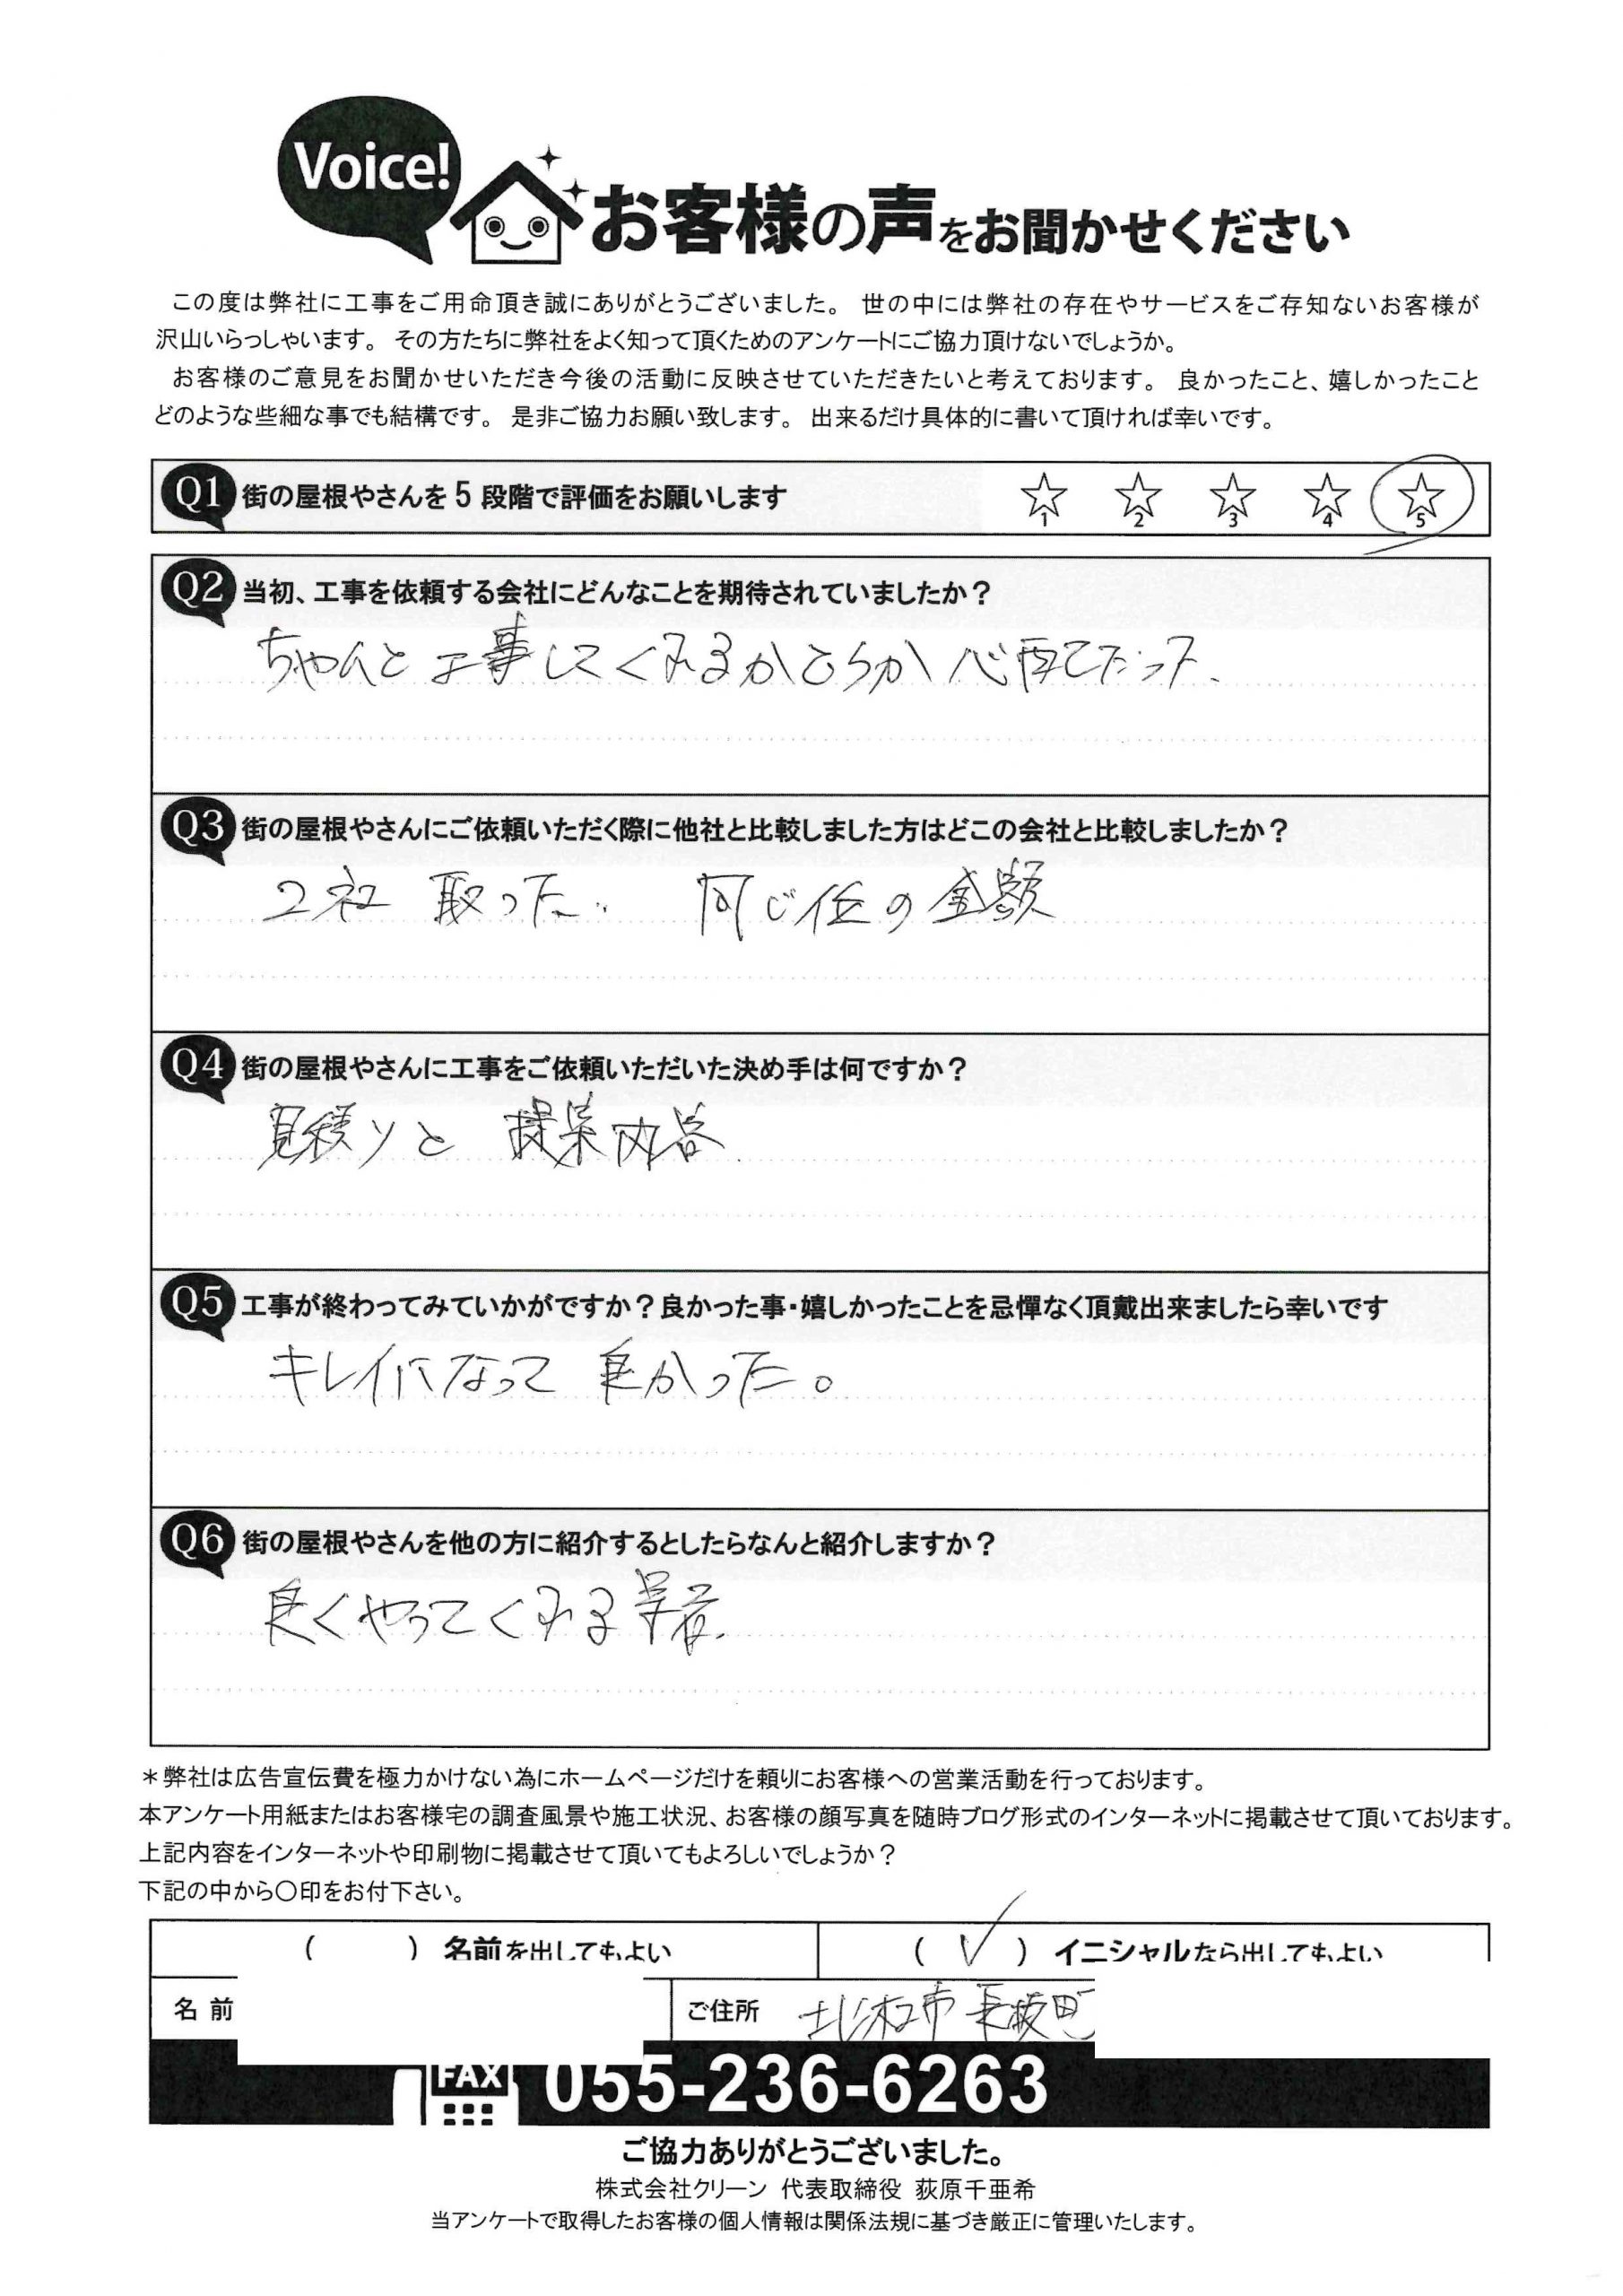 Voice!
お客様の声をお聞かせください
この度は弊社に工事をご用命頂き誠にありがとうございました。 世の中には弊社の存在やサービスをご存知ないお客様が
沢山いらっしゃいます。 その方たちに弊社をよく知って頂くためのアンケートにご協力頂けないでしょうか。
お客様のご意見をお聞かせいただき今後の活動に反映させていただきたいと考えております。 良かったこと、嬉しかったこと
どのような些細な事でも結構です。 是非ご協力お願い致します。 出来るだけ具体的に書いて頂ければ幸いです。
Q1 街の屋根やさんを5段階で評価をお願いします 1 2 3 4 5
Q2 当初、工事を依頼する会社にどんなことを期待されていましたか？
ちゃんと工事してくれるかどうか心配だった、
Q3 街の屋根やさんにご依頼いただく際に他社と比較しました方はどこの会社と比較しましたか？
2社 取った. 同じ位の金額
Q4 街の屋根やさんに工事をご依頼いただいた決め手は何ですか？
見積りと 提案内容
Q5 工事が終わってみていかがですか？良かった事・嬉しかったことを忌憚なく頂戴出来ましたら幸いです
キレイになって 良かった。
Q6 街の屋根やさんを他の方に紹介するとしたらなんと紹介しますか？
良くやってくれる業者.
＊弊社は広告宣伝費を極力かけない為にホームページだけを頼りにお客様への営業活動を行っております。
本アンケート用紙またはお客様宅の調査風景や施工状況、お客様の顔写真を随時ブログ形式のインターネットに掲載させて頂いております。
上記内容をインターネットや印刷物に掲載させて頂いてもよろしいでしょうか？
下記の中から〇印をお付下さい。
( ) 名前を出してもよい ( ✓ ) イニシャルなら出してもよい
名前 ご住所 北杜市長坂町
FAX 055-236-6263
ご協力ありがとうございました。
株式会社クリーン 代表取締役 荻原千亜希
当アンケートで取得したお客様の個人情報は関係法規に基づき厳正に管理いたします。